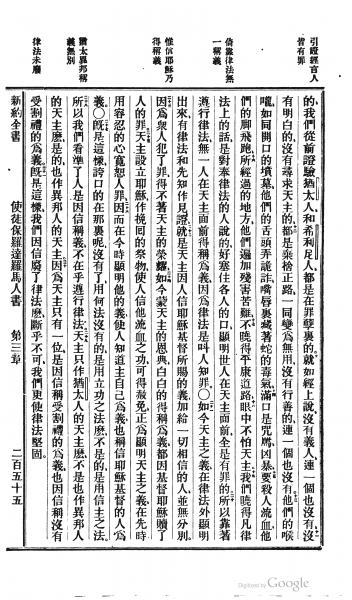 引證經言人
皆有罪
倚靠律法無
一稱義
惟信耶穌乃
得稱義
猶太異邦稱
義無別
律法未廢
的、我們從前證驗猶太人和希利尼人、都是在罪孽裏的、就如經上說、沒有義人、連一個也沒有、沒
有明白的、沒有尋求天主的、都是棄捨正路、一同變爲無用、沒有行善的、連一個也沒有、他們的喉
嚨、如同開口的墳墓、他們的舌頭弄詭詐、嘴唇裏藏著蛇的毒氣、滿口是咒罵凶暴、要殺人流血、他
們的脚飛跑、所經過的地方、他們遍加殘害苦難、不曉得平康道路、眼中不怕天主、我們曉得凡律
法上的話、是對奉律法的人說的、好塞住各人的口、顯明世人在天主面前全是有罪的、所以靠著
遵行律法、無一人在天主面前得稱爲義、因爲律法是叫人知罪○如今天主之義、在律法外顯明
出來、有律法和先知作見證、就是天主因人信耶穌基督所賜的義、加給一切相信的人、並無分別、
因爲衆人犯了罪、得不著天主的榮耀、如今蒙天主的恩典、白白的得稱爲義、都因基督耶穌贖了
人的罪、天主設立耶穌、作挽囘的祭物、使人信他流血之功、可得赦免、正爲顯明天主之義、在先時
用容忍的心、寬恕人罪、因而在今時顯明他的義、使人知道主自己爲義、也稱信耶穌基督的人爲
義○旣是這樣、誇口的在那裏呢、沒有了、用何法沒有的、是用立功之法麽、不是的、是用信主之法、
所以我們看準了、人是因信稱義、不在乎遵行律法、天主只作猶太人的天主麽、不是也作異邦人
的天主麽、是的、也作異邦人的天主、因爲天主只有一位、是因信稱受割禮的爲義、也因信稱沒有
受割禮的爲義、旣是這樣、我們因信廢了律法麽、斷乎不可、我們更使律法堅固。
新約全書 使徒保羅達羅馬人書 第三章 二百五十五
Digitized by Google